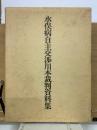 水俣病自主交渉川本裁判資料集